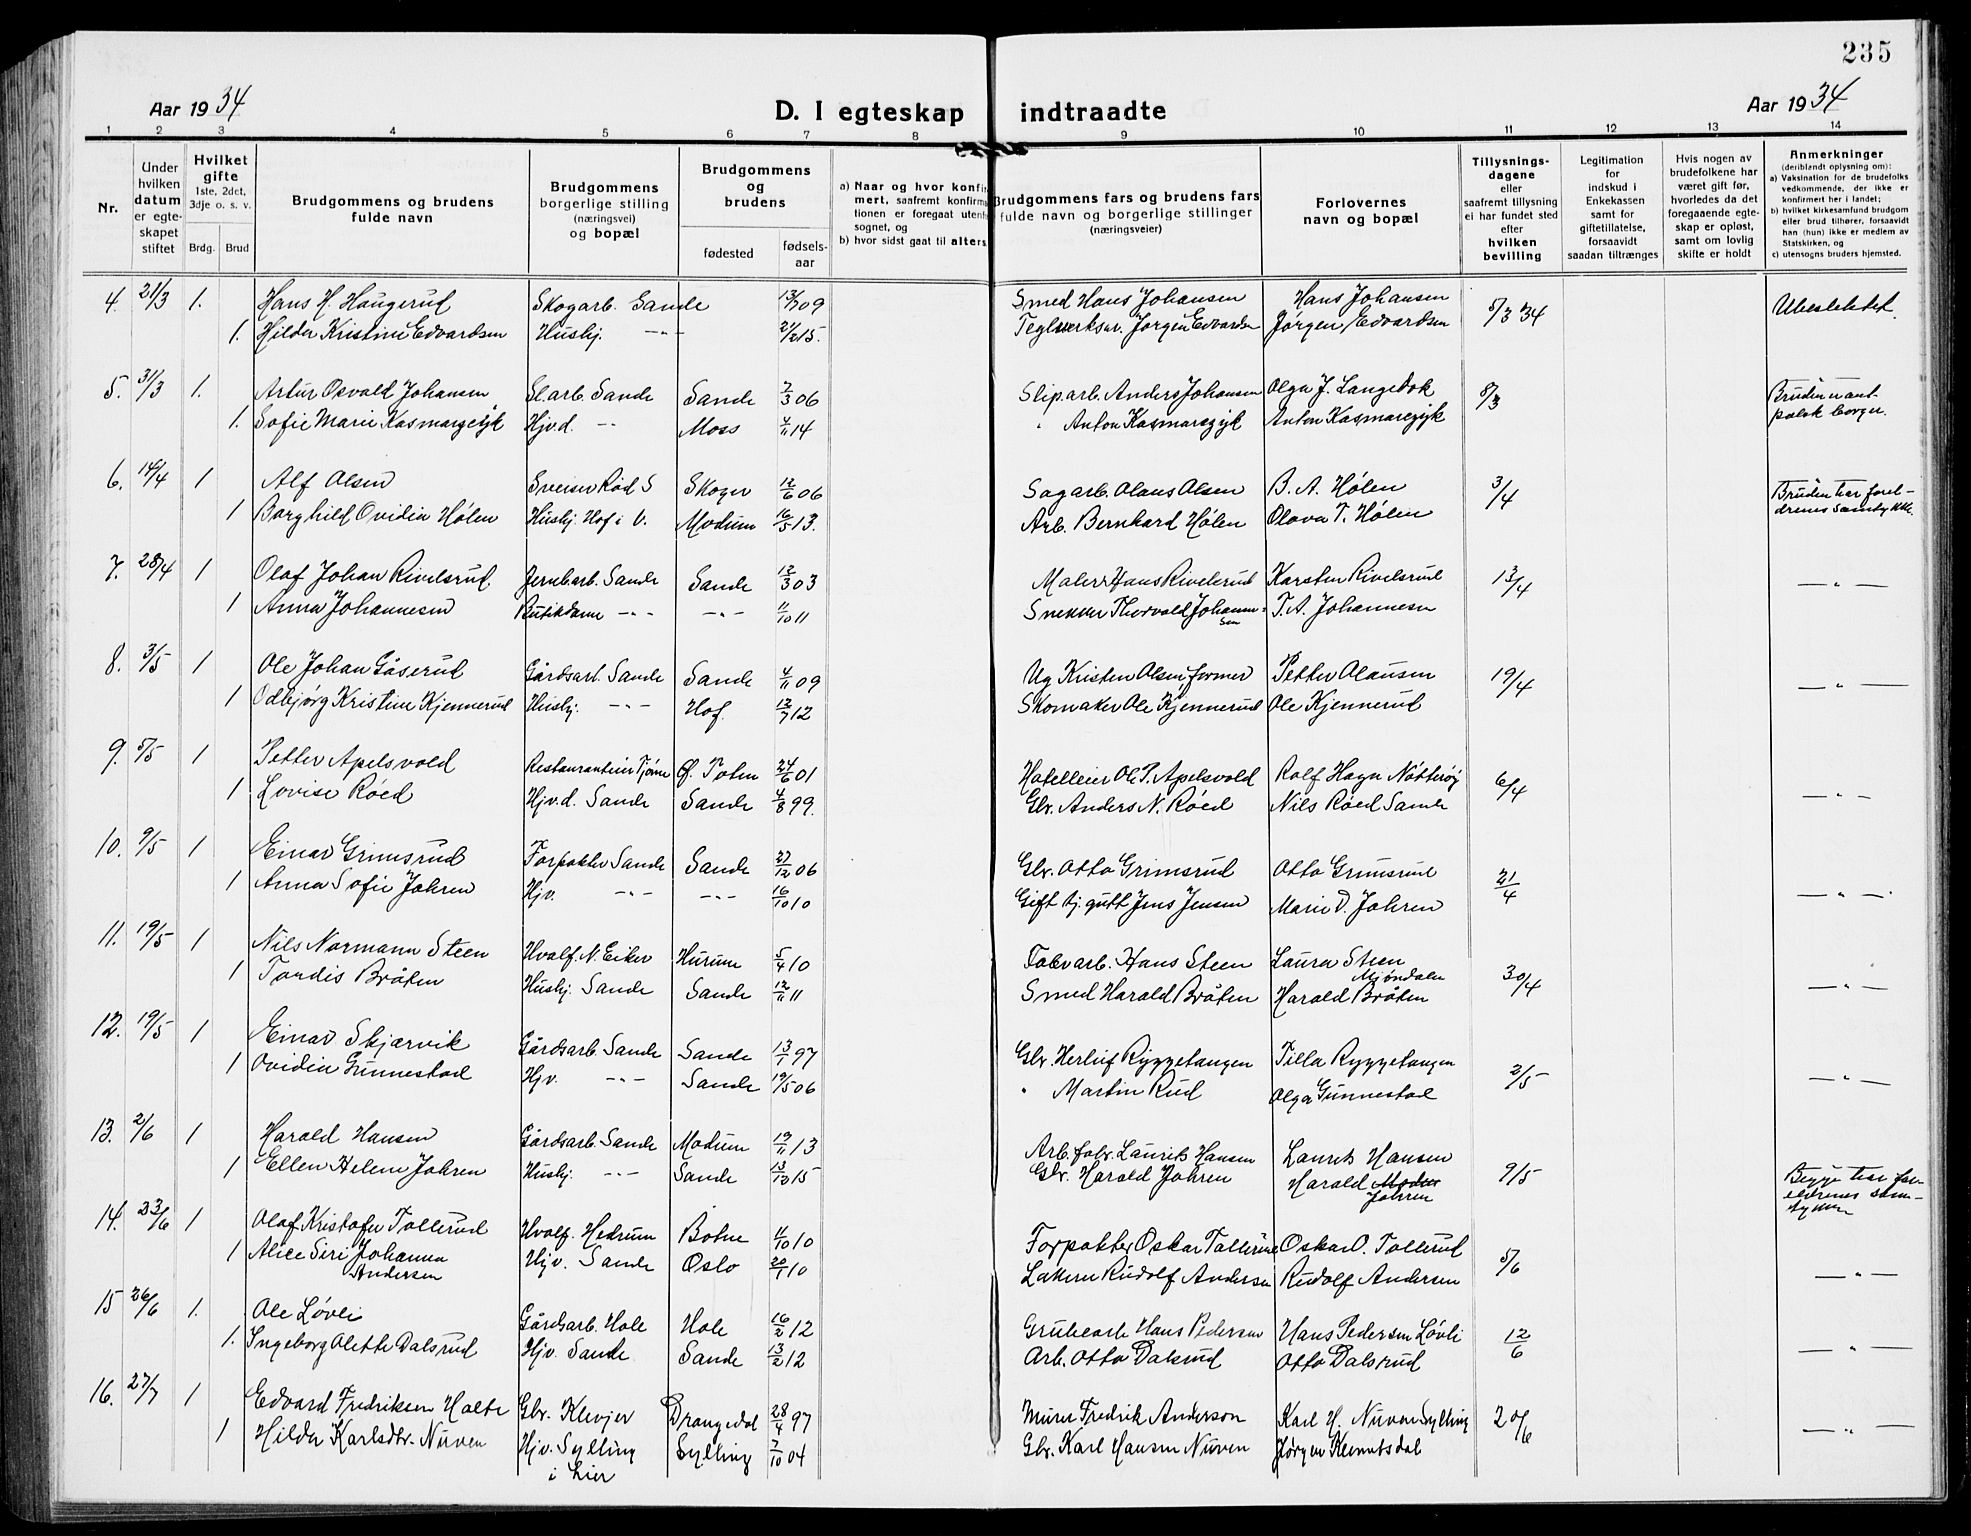 235
Aar 1934
D. I egteskap indtraadte
Aar 1934
1 2 3 4 5 6 7 8 9 10 11 12 13 14
Nr.
Under hvilken datum er egteskapet stiftet
Hvilket gifte
1ste, 2det, 3dje o. s. v.
Brdg. Brud
Brudgommens og brudens fulde navn
Brudgommens borgerlige stilling (næringsvei) og bopæl
Brudgommens og brudens
fødested
fødsels-aar
a) Naar og hvor konfirmert, saafremt konfirmationen er foregaat utenfor sognet, og
b) hvor sidst gaat til alters
Brudgommens fars og brudens fars fulde navn og borgerlige stillinger (næringsveier)
Forlovernes navn og bopæl
Tillysnings-dagene eller saafremt tillysning ei har fundet sted efter hvilken bevilling
Legitimation for indskud i Enkekassen samt for giftetillatelse, forsaavidt saadan tiltrænges
Hvis nogen av brudefolkene har været gift før, hvorledes da det foregaaende egteskap er opløst, samt om lovlig skifte er holdt
Anmerkninger
(deriblandt oplysning om):
a) Vaksination for de brudefolks vedkommende, der ikke er konfirmert her i landet;
b) hvilket kirkesamfund brudgom eller brud tilhører, forsaavidt han (hun) ikke er medlem av Statskirken, og
c) utensogns bruders hjemsted.
4. 21/3 1. Hans H. Haugerud Skogarb. Sande 13/7 09 Smed Hans Johansen Hans Johansen 5/3 34 Ubeslektet.
1. Hilda Kristine Edvardsen Hushj. -"- 21/2 15. Teglverksar. Jørgen Edvardsen Jørgen Edvardsen
5. 31/3 1. Artur Osvald Johansen Sl.arb. Sande Sande 7/3 06 Slip.arb. Anders Johansen Olga J. Langedok 8/3 Bruden er ant-
1. Sofie Marie Kasmargeijk Hjv.d. -"- Moss 4/11 14 " Anton Kasmaregijk Anton Kasmaregijk polsk borger.
6. 14/4 1 Alf Olsen Sveiser Rød S Skoger 12/6 06 Sagarb. Olaus Olsen B. A. Hølen 3/4 Bruden har forel-
1 Borghild Ovidia Hølen Hushj. Hof i V. Modum 16/5 13. Arb. Bernhard Hølen Olava T. Hølen drenes samtykke.
7. 28/4 1 Olaf Johan Rivelsrud. Jernbarb. Sande Sande 12/3 03 Maler Hans Rivelsrud Karsten Rivelsrud 13/4 — " —
1 Anna Johannesen Butikdame -"- -"- 11/10 11 Snekker Thorvald Johannes- T. A. Johannesen
sen
8. 3/5 1 Ole Johan Gåserud Gårdsarb. Sande Sande 4/11 09 Ug Kristen Olsen, former Petter Olausen 19/4 — " —
1 Odbjørg Kristine Kjennerud Hushj. -"- Hof. 12/7 12 Skomaker Ole Kjennerud Ole Kjennerud
9. 5/5 1 Petter Apelsvold Restauranteier Tjøme Ø. Toten 24/6 01 Hotelleier Ole P. Apelsvold Rolf Hagn Nøtterøy 6/4 — " —
1 Lovise Røed Hjv.d. Sande Sande 4/8 99. Gbr. Anders N. Røed Nils Røed Sande
10. 9/5 1 Einar Grimsrud Forpakter Sande Sande 27/12 06 Gbr. Otto Grimsrud Otto Grimsrud 21/4 — " —
1 Anna Sofie Johren Hjv. -"- -"- 16/10 10 Gift tj. gutt Jens Jensen Marie D. Johren
11. 19/5 1 Nils Normann Steen Hvalf. N. Eiker Hurum 5/4 10 Fabrarb. Hans Steen Laura Steen 30/4 — " —
Mjøndalen
1 Tordis Bråten Hushj. Sande Sande 12/11 11 Smed Harald Bråten Harald Bråten
12. 19/5 1 Einar Skjærvik Gårdsarb. Sande Sande 13/1 97 Gbr. Herluf Ryggetangen Tilla Ryggetangen 2/5 — " —
1 Ovidia Gunnestad Hjv. -"- Sande 19/5 06 " Martin Rud Olga Gunnestad
13. 2/6 1 Harald Hansen Gårdsarb. Sande Modum 19/11 13 Arb. fabr. Laurits Hansen Laurits Hansen 9/5 Begge har for-
1 Ellen Helene Johren Hushj. -"- Sande 13/10 15 Gbr. Harald Johren Harald Johren eldrenes sam-
tykke
14. 23/6 1 Olaf Kristofer Tollerud Hvalf. Hedrum Botne 4/10 10 Forpakter Oskar Tollerud Oskar O. Tollerud 5/6 — " —
1 Alice Siri Johanna Hjv. Sande Oslo 20/1 10 Lakerer Rudolf Andersen Rudolf Andersen
Andersen
15 26/6 1. Ole Løvli Gårdsarb. Hole Hole 16/2 12 Grubearb Hans Pedersen Hans Pedersen Løvli 12/6 — " —
1. Ingeborg Olette Dalsrud Hjv. Sande Sande 13/2 12 Arb. Otto Dalsrud Otto Dalsrud
16. 27/7 1 Edvard Fredriksen Holte Gbr. Klevjer Drangedal 28/4 97 Murer Fredrik Anderson Karl H. Nuven Sylling 20/6 — " —
1 Hilda Karlsdtr. Nuven Hjv. Sylling Sylling 7/10 04 Gbr. Karl Hansen Nuven Jørgen Klemetsdal
i Lier